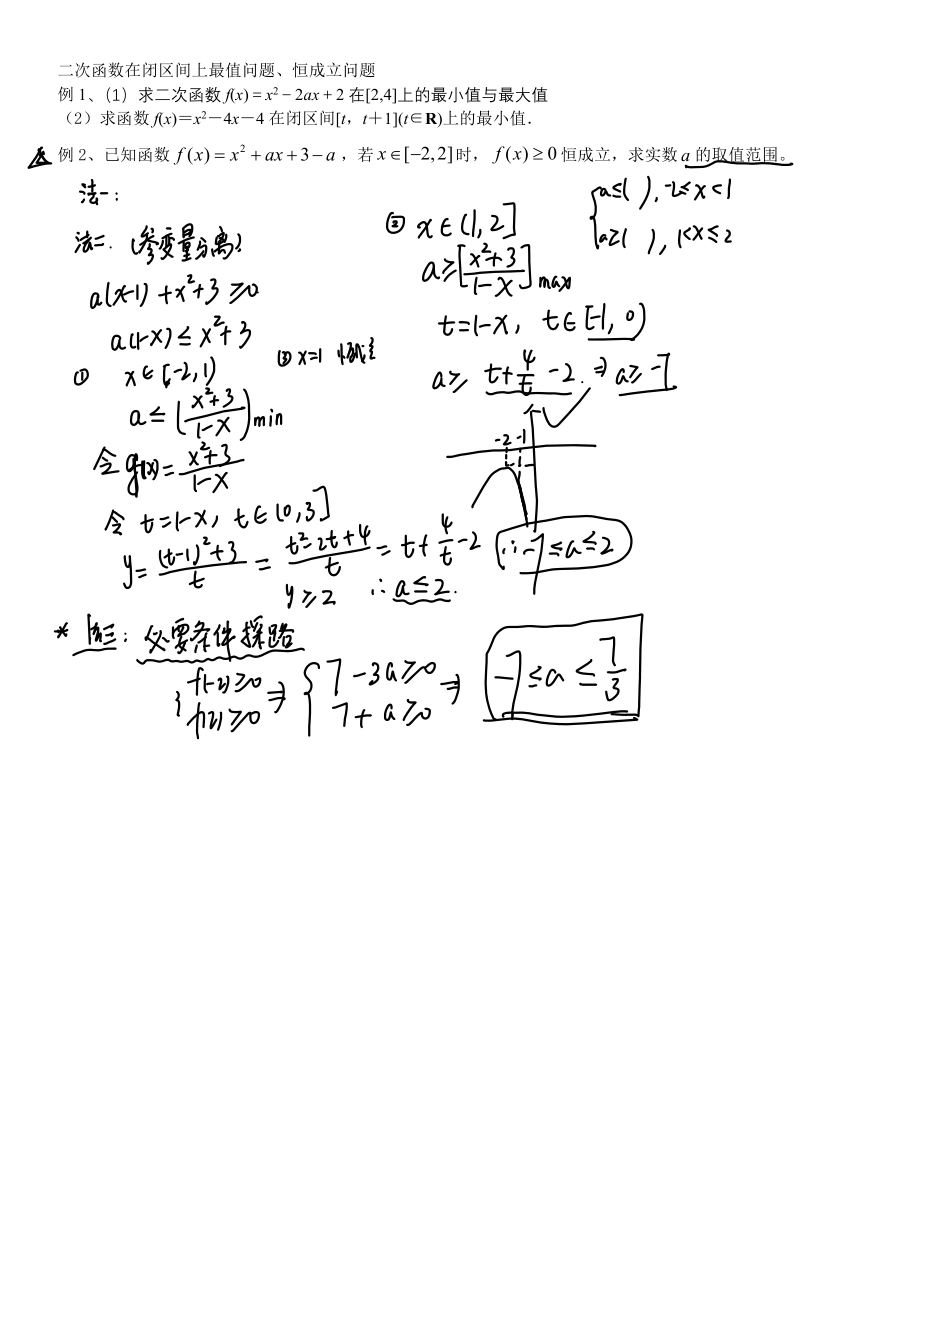 二次函数在闭区间上最值问题、恒成立问题
例 1、（1）求二次函数 f(x) = x² − 2ax + 2 在[2,4]上的最小值与最大值
（2）求函数 f(x)＝x²－4x－4 在闭区间[t，t＋1](t∈R)上的最小值.
例 2、已知函数 f(x) = x² + ax + 3 − a ，若 x∈[−2,2] 时， f(x) ≥ 0 恒成立，求实数 a 的取值范围。
法一：
法二. (参变量分离)
a(x-1)+x²+3≥0
a(1-x)≤x²+3
① x∈[-2,1)
a≤((x²+3)/(1-x))min
令 g(x)=(x²+3)/(1-x)
令 t=1-x, t∈(0,3]
y=((t-1)²+3)/t=(t²-2t+4)/t=t+4/t-2
y≥2 ∴a≤2.
③ x=1 恒成立
② x∈(1,2]
a≥[(x²+3)/(1-x)]max
t=1-x, t∈[-1,0)
a≥t+4/t-2.⇒a≥-7
{a≤( ),-2≤x<1
a≥( ),1<x≤2
-2 -1
∴-7≤a≤2
* 法三：必要条件探路
{f(-2)≥0
f(2)≥0
⇒{7-3a≥0
7+a≥0
⇒ -7≤a≤7/3